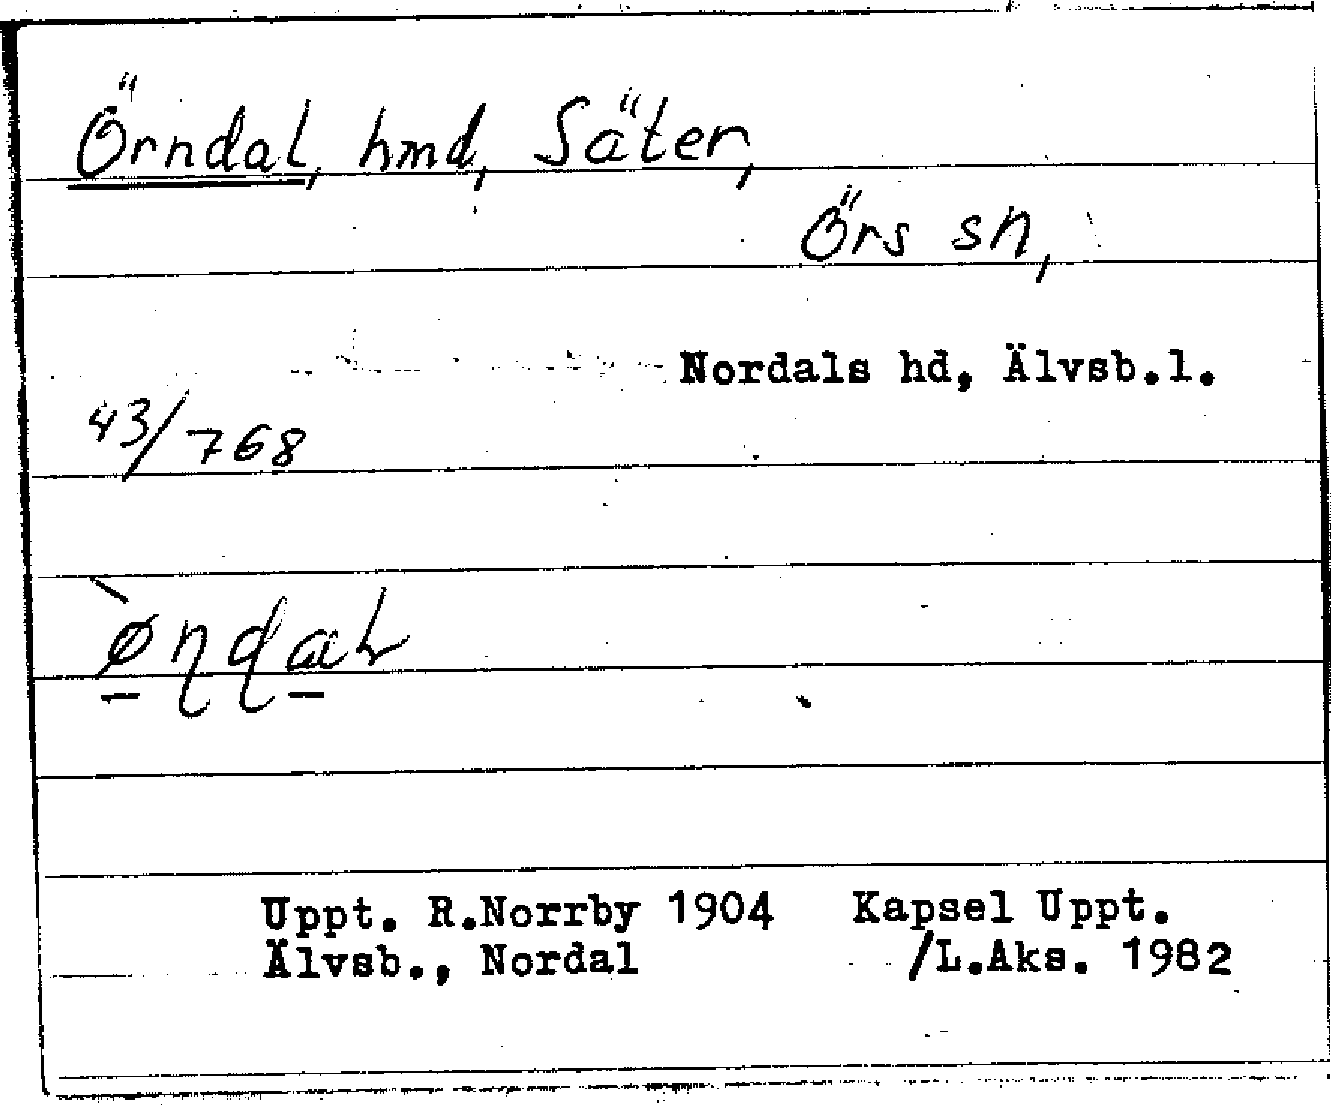 Örndal, hmd, Säter,
Örs sn,
Nordals hd, Älvsb.l.
43/768
`øṇḍaɫ
Uppt. R.Norrby 1904 Kapsel Uppt.
Älvsb., Nordal /L.Aks. 1982